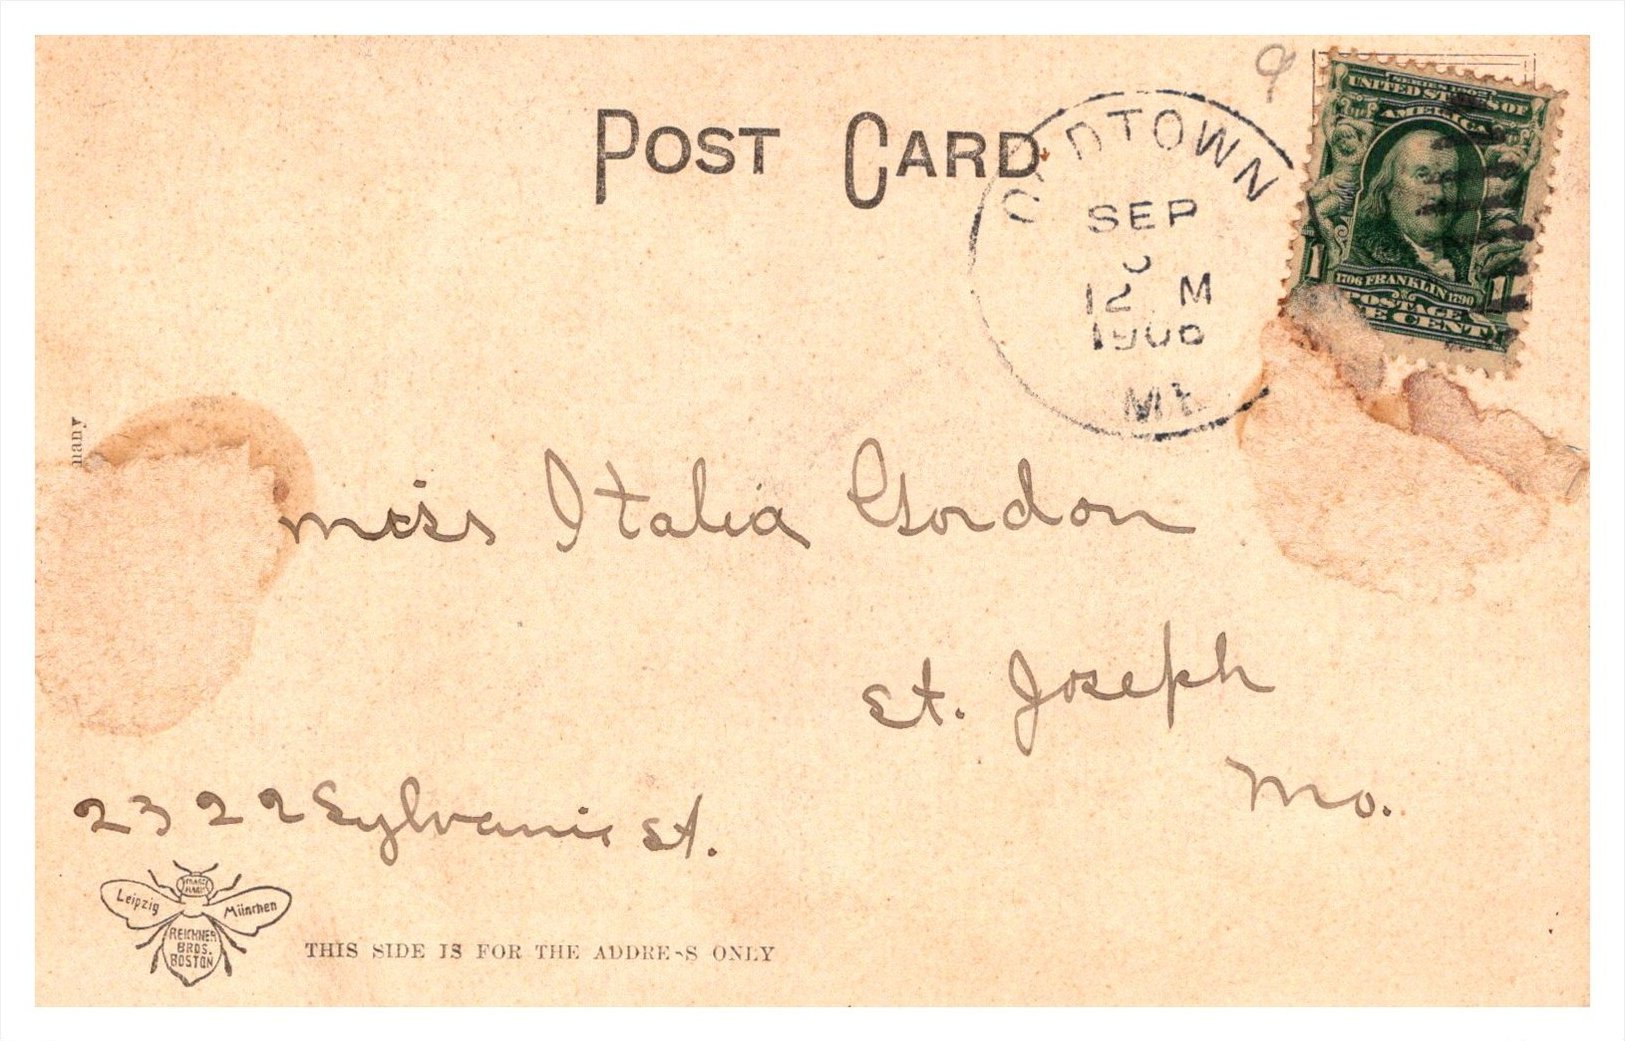 POST CARD
OLDTOWN
SEP
12 M
1906
ME
9
SERIES 1902
UNITED STATES OF
AMERICA
1 1
1706 FRANKLIN 1790
POSTAGE
ONE CENT
many
Miss Italia Gordon
St. Joseph
Mo.
2322 Sylvanie St.
Leipzig München
REICHNER
BROS.
BOSTON
THIS SIDE IS FOR THE ADDRESS ONLY